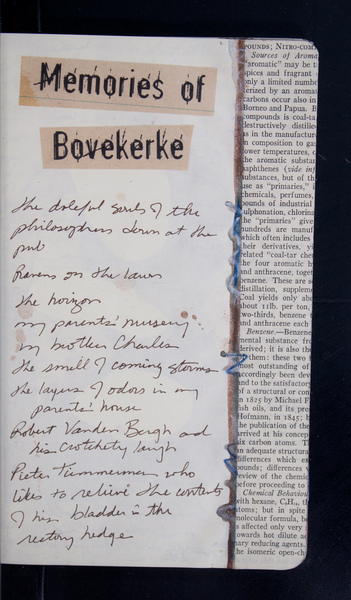 Memories of
Bovekerke
the doleful souls of the
philosophers down at the
pub
Ravens on the lawn
the horizon
my parents' nursery
my brother Charles
the smell of coming storms
the layers of odors in my
parents' house
Robert Vanden Bergh and
his crotchety laugh
Pieter Timmerman who
likes to relieve the contents
of his bladder in the
rectory hedge
POUNDS; NITRO-COM
Sources of Aroma
"aromatic" may be t
spices and fragrant
only a limited numbe
terized by an aromat
carbons occur also in
Borneo and Papua. B
compounds is coal-ta
destructively distille
as in the manufacture
in composition to ga
lower temperatures, c
the aromatic substa
naphthenes (vide inf
substances, but of th
use as "primaries," i
chemicals, perfumes,
pounds of industrial
sulphonation, chlorin
the "primaries" give
hundreds are manuf
which often includes
their derivatives, vi
related "coal-tar chem
the four aromatic h
and anthracene, toget
benzene. These are s
distillation, suppleme
Coal yields only abo
about 1 lb. per ton,
two-thirds, benzene
and anthracene each
Benzene.—Benzene
mental substance fro
derived; it is also th
them: these two
most outstanding of
accordingly been det
and to the satisfactor
of a structural or con
in 1825 by Michael F
fish oils, and its pres
Hofmann, in 1845; b
the publication of the
arrived at his concep
six carbon atoms. T
an adequate structura
differences which e
pounds; differences
review of the chemic
before proceeding to
Chemical Behaviou
with hexane, C₆H₁₄, th
atoms; but in spite
molecular formula, be
is affected only very
towards hot dilute ac
nary reducing agents.
the isomeric open-ch